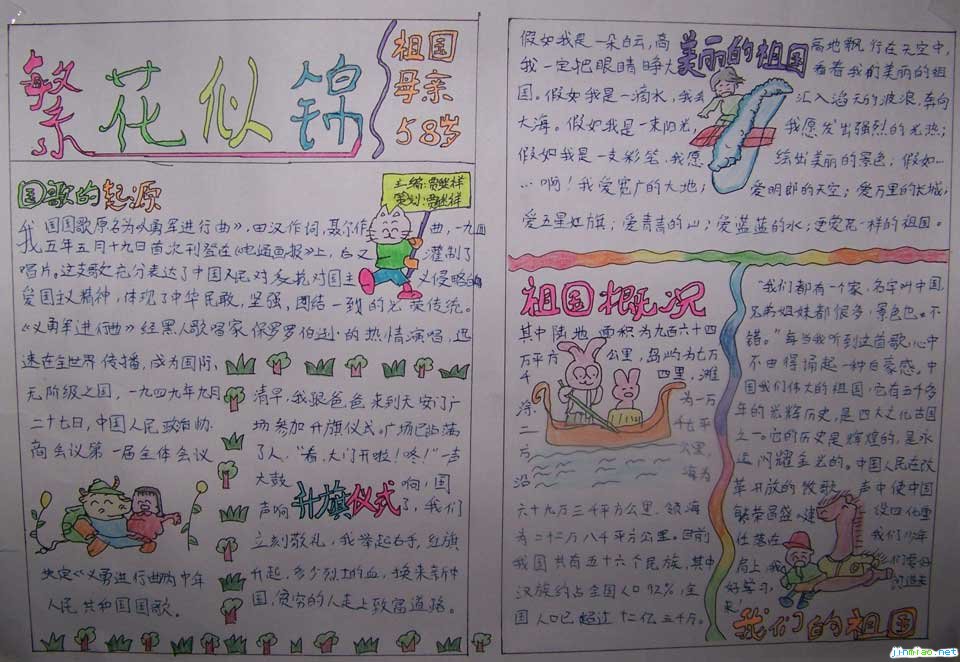 繁花似锦
祖国
母亲
58岁
国歌的起源
主编:
策划:
我国国歌原名为《义勇军进行曲》，田汉作词，聂尔作曲，一九三
五年五月十九日首次刊登在《电通画报》上，后又灌制了
唱片。这支歌充分表达了中国人民对反抗对国主义侵略的
爱国主义精神，体现了中华民敢，坚强，团结一到的光荣传统。
《义勇军进行曲》经黑人歌唱家保罗罗伯逊的热情演唱，迅
速在全世界传播，成为国际
无阶级之国，一九四九年九月
二十七日，中国人民政治协
商会议第一届全体会议
决定《义勇进行曲》为中华
人民共和国国歌。
清早，我跟爸爸来到天安门广
场参加升旗仪式。广场已站满
了人，“看，大门开啦！咚！”一声
大鼓响，国
声响了，我们
升旗仪式
立刻敬礼，我举起右手，红旗
升起，多少烈士的血，换来新中
国，贫穷的人走上致富道路。
美丽的祖国
假如我是一朵白云，高高地飘行在天空中，
我一定把眼睛睁大看看我们美丽的祖
国。假如我是一滴水，我汇入滔天的波浪，奔向
大海。假如我是一束阳光，我愿发出强烈的光热；
假如我是一支彩笔，我愿绘出美丽的景色；假如…
…啊！我爱宽广的大地；爱明郎的天空；爱万里的长城；
爱五星红旗；爱青青的山；爱蓝蓝的水；更爱花一样的祖国。
祖国概况
其中陆地面积为九百六十四
万平方公里，岛屿为七万
千四里，滩
涂为一万
二千七平
万公里，
沿海为
六十九万三千平方公里，领海
为二十二万八千平方公里。目前
我国共有五十六个民族，其中
汉族约占全国人口92%，全
国人口已超过十二亿三千万。
“我们都有一个家，名字叫中国，
兄弟姐妹都很多，景色也不
错。”每当我听到这首歌，心中
不由得涌起一种自豪感。中
国我们伟大的祖国，它有五千多
年的光辉历史，是四大文化古国
之一。它的历史是辉煌的，是永
远闪耀金光的。中国人民在改
革开放的牧歌声中使中国
繁荣昌盛，建设四化重
任落在我们少年
肩上，我们要好
好学习，
来！
我们的祖国
jinmiao.net